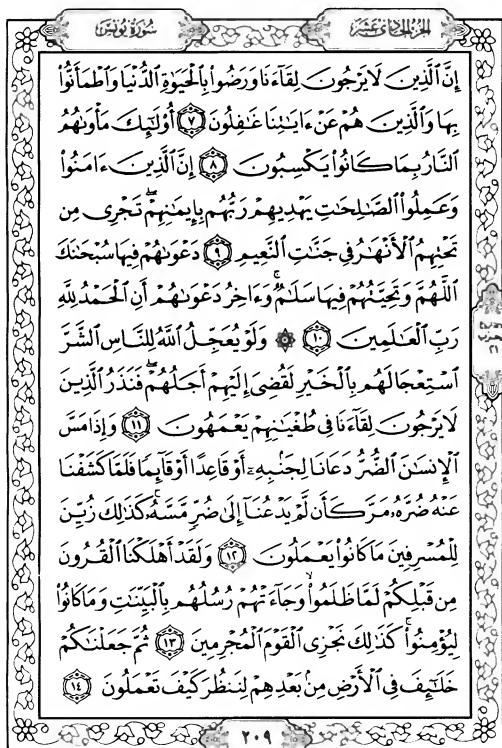 سُورَةُ يُونُسَ
الجُزْءُ الحَادِى عَشَرَ
إِنَّ ٱلَّذِينَ لَا يَرْجُونَ لِقَآءَنَا وَرَضُوا۟ بِٱلْحَيَوٰةِ ٱلدُّنْيَا وَٱطْمَأَنُّوا۟
بِهَا وَٱلَّذِينَ هُمْ عَنْ ءَايَٰتِنَا غَٰفِلُونَ ٧ أُو۟لَٰٓئِكَ مَأْوَىٰهُمُ
ٱلنَّارُ بِمَا كَانُوا۟ يَكْسِبُونَ ٨ إِنَّ ٱلَّذِينَ ءَامَنُوا۟
وَعَمِلُوا۟ ٱلصَّٰلِحَٰتِ يَهْدِيهِمْ رَبُّهُم بِإِيمَٰنِهِمْ ۖ تَجْرِى مِن
تَحْتِهِمُ ٱلْأَنْهَٰرُ فِى جَنَّٰتِ ٱلنَّعِيمِ ٩ دَعْوَىٰهُمْ فِيهَا سُبْحَٰنَكَ
ٱللَّهُمَّ وَتَحِيَّتُهُمْ فِيهَا سَلَٰمٌ ۚ وَءَاخِرُ دَعْوَىٰهُمْ أَنِ ٱلْحَمْدُ لِلَّهِ
رَبِّ ٱلْعَٰلَمِينَ ١٠ ۞ وَلَوْ يُعَجِّلُ ٱللَّهُ لِلنَّاسِ ٱلشَّرَّ
ٱسْتِعْجَالَهُم بِٱلْخَيْرِ لَقُضِىَ إِلَيْهِمْ أَجَلُهُمْ ۖ فَنَذَرُ ٱلَّذِينَ
لَا يَرْجُونَ لِقَآءَنَا فِى طُغْيَٰنِهِمْ يَعْمَهُونَ ١١ وَإِذَا مَسَّ
ٱلْإِنسَٰنَ ٱلضُّرُّ دَعَانَا لِجَنۢبِهِۦٓ أَوْ قَاعِدًا أَوْ قَآئِمًا فَلَمَّا كَشَفْنَا
عَنْهُ ضُرَّهُۥ مَرَّ كَأَن لَّمْ يَدْعُنَآ إِلَىٰ ضُرٍّ مَّسَّهُۥ ۚ كَذَٰلِكَ زُيِّنَ
لِلْمُسْرِفِينَ مَا كَانُوا۟ يَعْمَلُونَ ١٢ وَلَقَدْ أَهْلَكْنَا ٱلْقُرُونَ
مِن قَبْلِكُمْ لَمَّا ظَلَمُوا۟ ۙ وَجَآءَتْهُمْ رُسُلُهُم بِٱلْبَيِّنَٰتِ وَمَا كَانُوا۟
لِيُؤْمِنُوا۟ ۚ كَذَٰلِكَ نَجْزِى ٱلْقَوْمَ ٱلْمُجْرِمِينَ ١٣ ثُمَّ جَعَلْنَٰكُمْ
خَلَٰٓئِفَ فِى ٱلْأَرْضِ مِنۢ بَعْدِهِمْ لِنَنظُرَ كَيْفَ تَعْمَلُونَ ١٤
٢٠٩